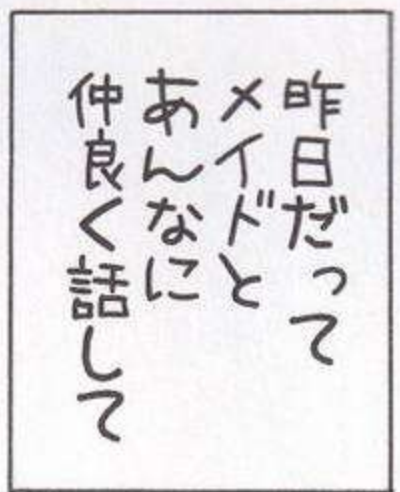 昨日だって
メイドと
あんなに
仲良く話して